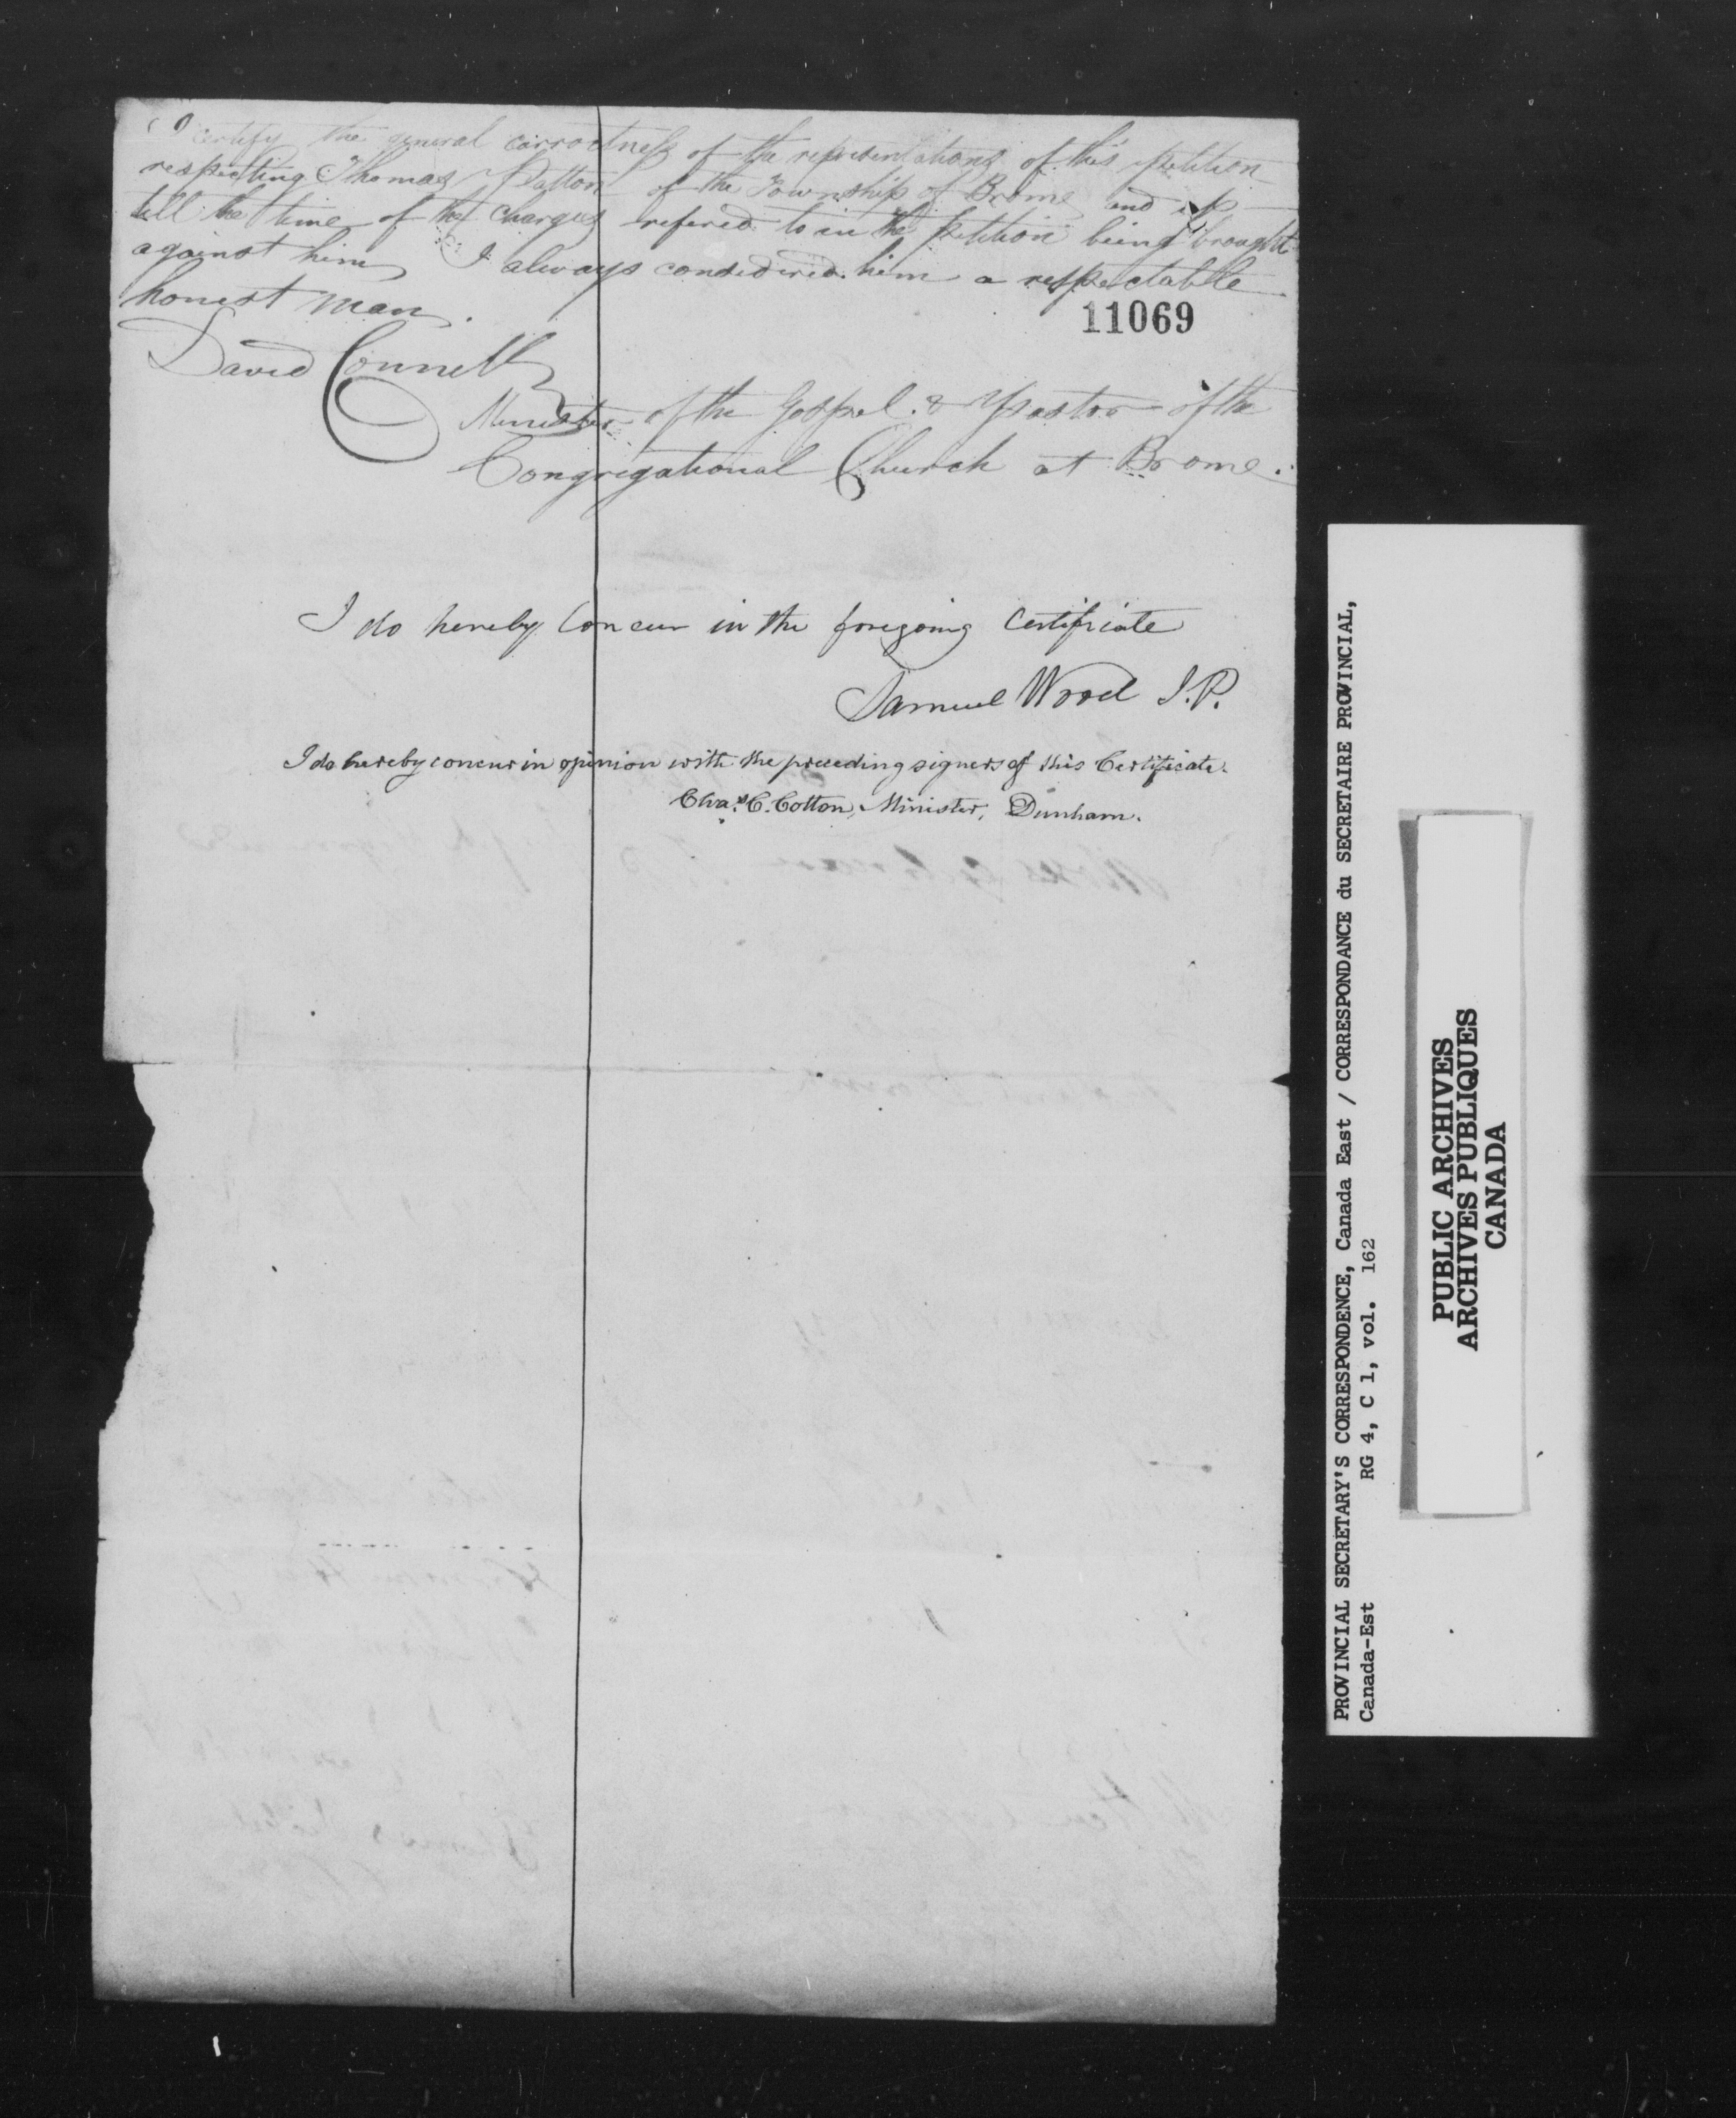 I certify the general corroctness of the representations of this petition
respecting Thomas Patton of the Township of Brome and up
till the time of the charges refered to in the petition being brought
against him I always considered him a respectable
honest man.
11069
David Connell
Minister of the Gospel & Pastor of the
Congregational Church at Brome.
I do hereby Concur in the foregoing Certificate
Samuel Wood J.P.
I do hereby concur in opinion with the preceding signers of this Certificate.
Chas. C. Cotton, Minister, Dunham.
PROVINCIAL SECRETARY'S CORRESPONDENCE, Canada East / CORRESPONDANCE du SECRETAIRE PROVINCIAL,
Canada-Est RG 4, C 1, vol. 162
PUBLIC ARCHIVES
ARCHIVES PUBLIQUES
CANADA